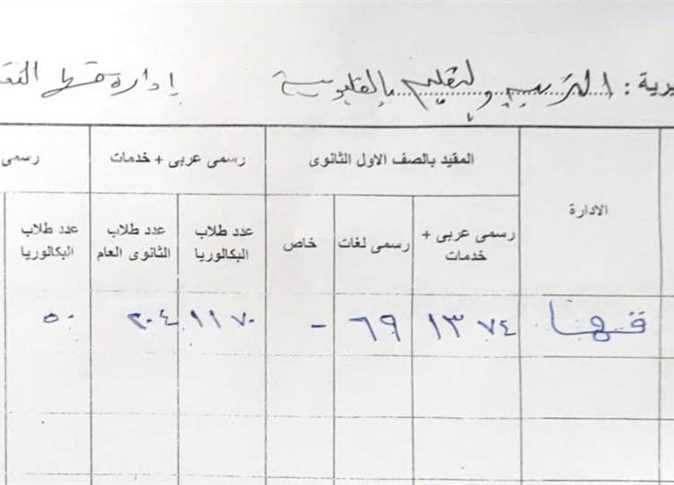 يرية : التربية والتعليم بالقليوبية إدارة
الادارة المقيد بالصف الاول الثانوى رسمى عربى + خدمات رسمى
رسمى عربى + خدمات رسمى لغات خاص عدد طلاب البكالوريا عدد طلاب الثانوى العام عدد طلاب البكالوريا
قها ١٣٧٤ ٦٩ - ١١٧٠ ٢٠٤ ٥٠